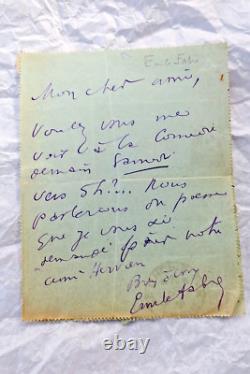 Emile Fabre
Mon cher ami,
Voulez vous me
voir à la Comédie
demain Samedi
vers 5h ?... Nous
parlerons du poème
que je vous ai
demandé pour notre
ami Hervieu
Emile Fabre